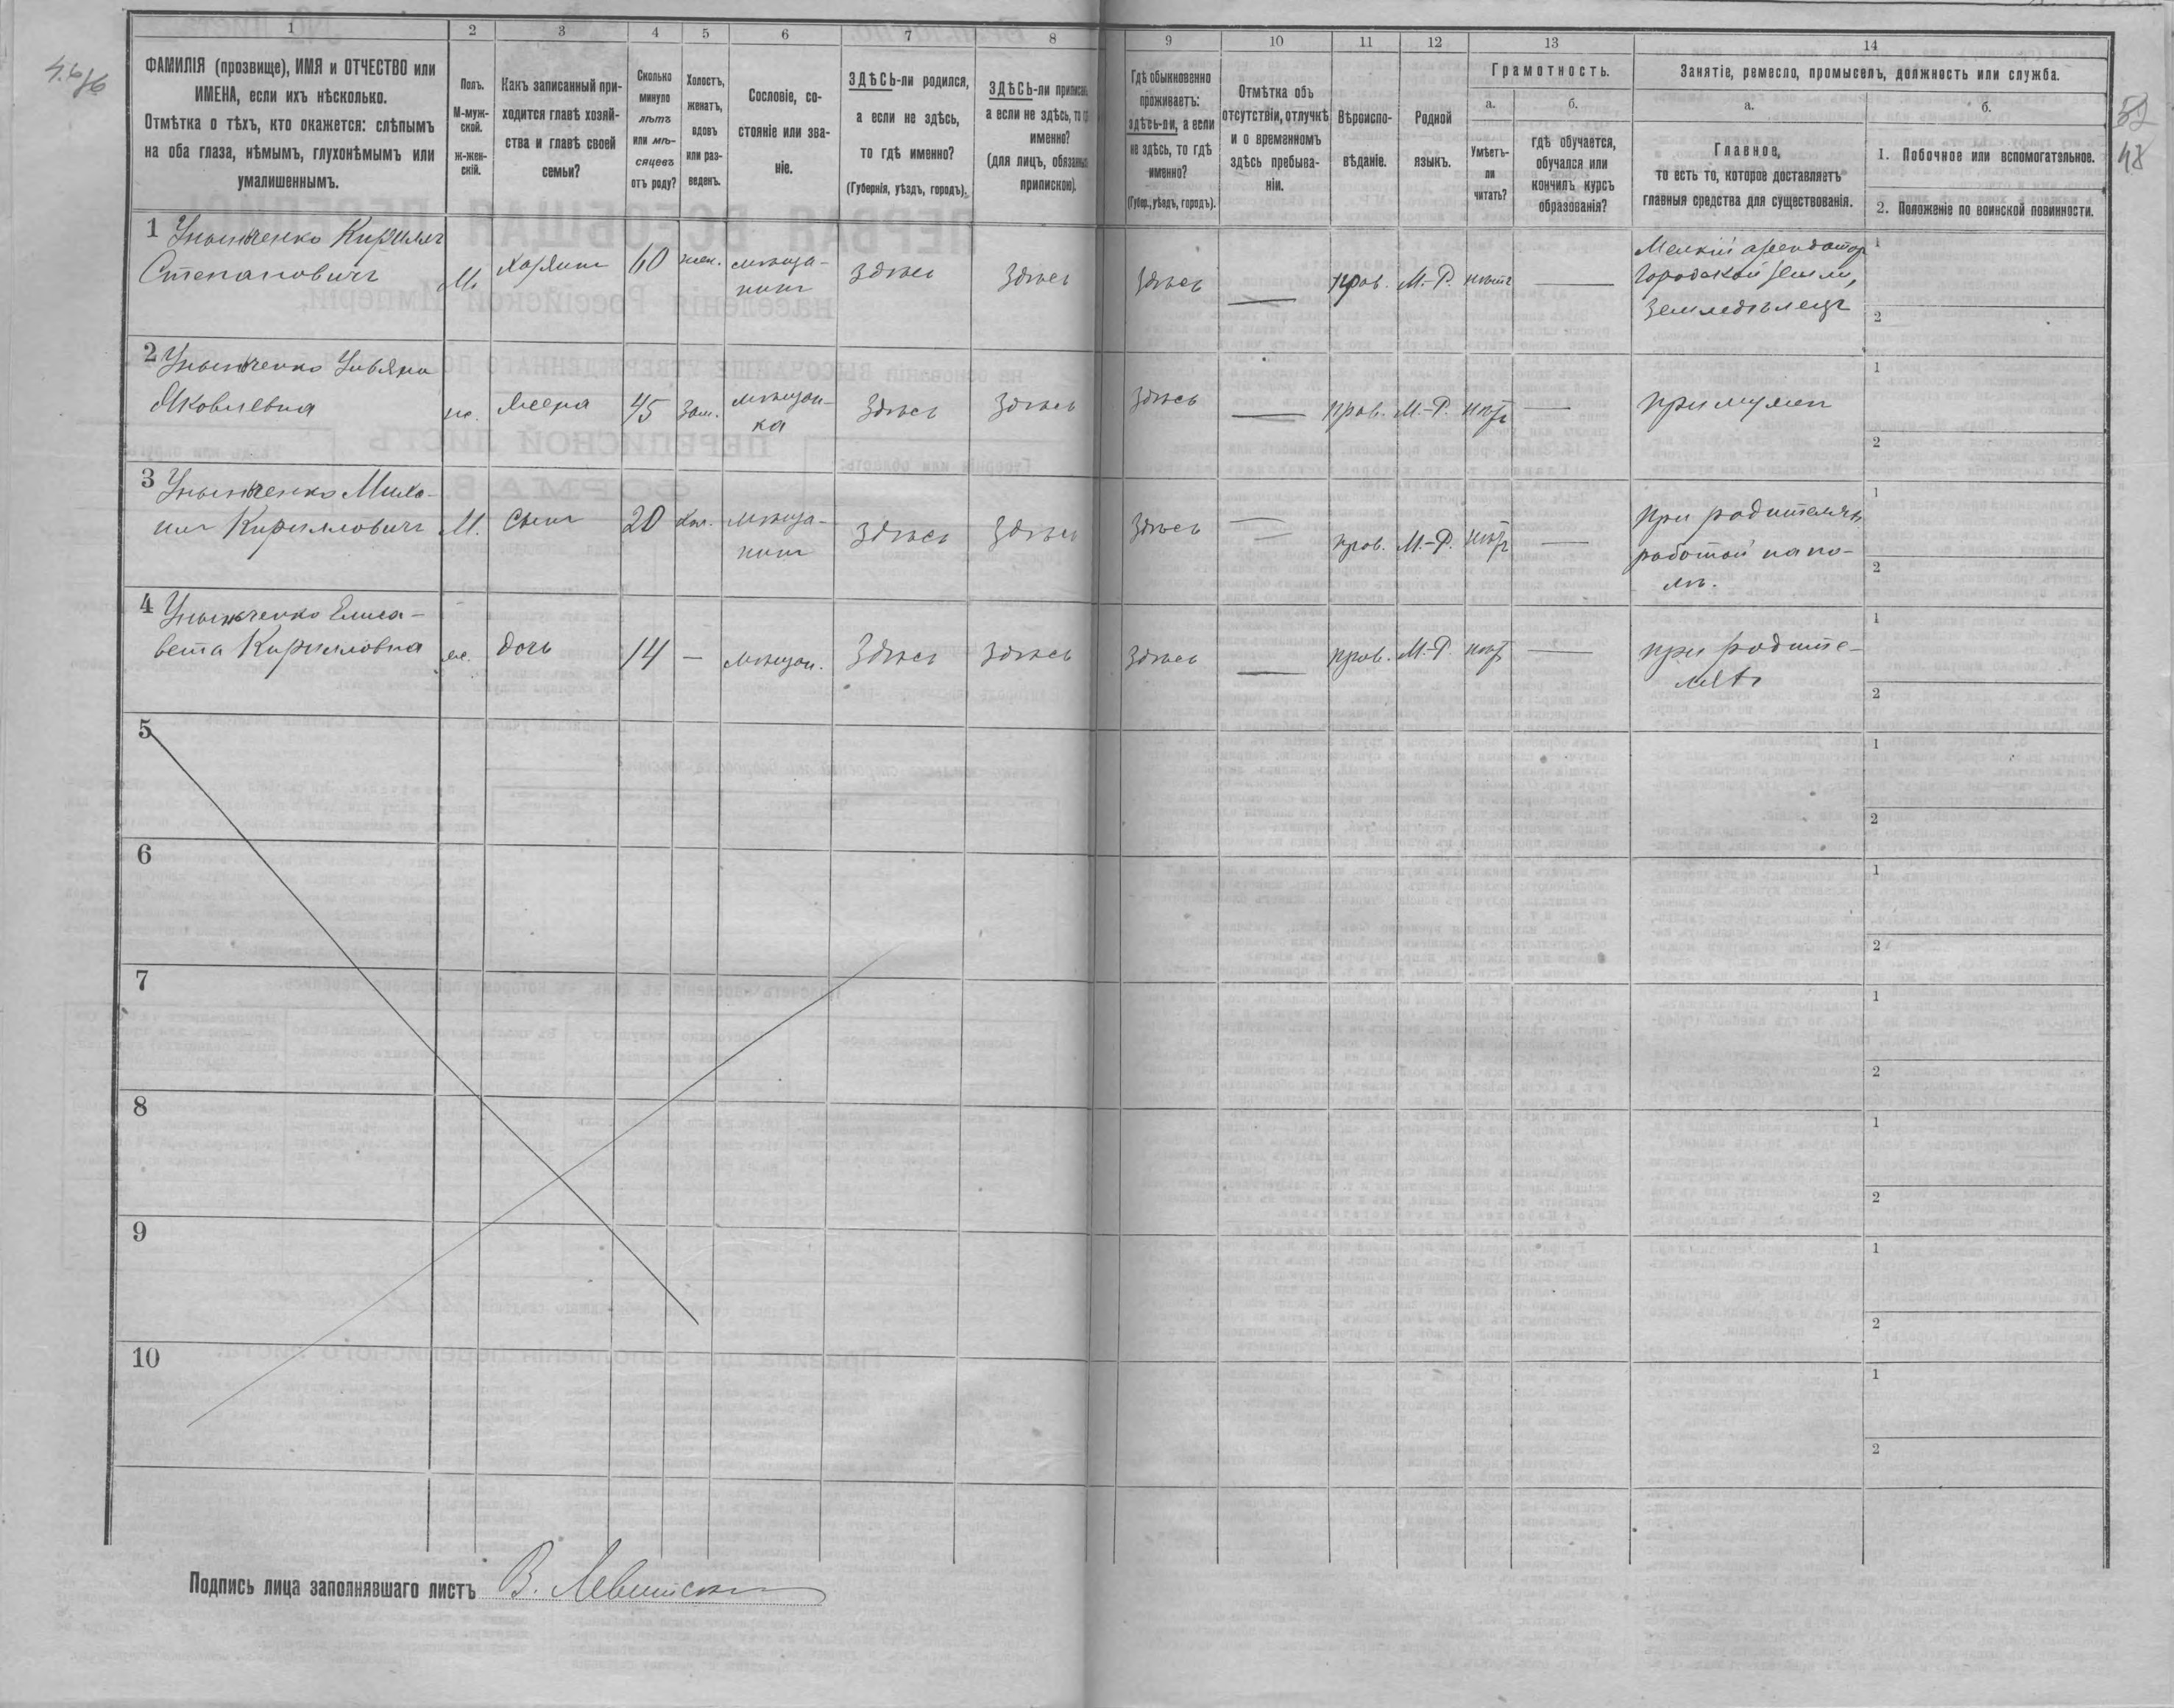 1 2 3 4 5 6 7 8 9 10 11 12 13 14
ФАМИЛІЯ (прозвище), ИМЯ и ОТЧЕСТВО или
ИМЕНА, если ихъ нѣсколько.
Отмѣтка о тѣхъ, кто окажется: слѣпымъ
на оба глаза, нѣмымъ, глухонѣмымъ или
умалишеннымъ.
Полъ.
М-муж-
ской.
ж-жен-
скій.
Какъ записанный при-
ходится главѣ хозяй-
ства и главѣ своей
семьи?
Сколько
минуло
лѣтъ
или мѣ-
сяцевъ
отъ роду?
Холостъ,
женатъ,
вдовъ
или раз-
веденъ.
Сословіе, со-
стояніе или зва-
ніе.
ЗДѢСЬ-ли родился,
а если не здѣсь,
то гдѣ именно?
(Губернія, уѣздъ, городъ).
ЗДѢСЬ-ли приписанъ,
а если не здѣсь, то гдѣ
именно?
(для лицъ, обязанныхъ
припискою).
Гдѣ обыкновенно
проживаетъ:
здѣсь-ли, а если
не здѣсь, то гдѣ
именно?
(Губер., уѣздъ, городъ).
Отмѣтка объ
отсутствіи, отлучкѣ
и о временномъ
здѣсь пребыва-
ніи.
Вѣроиспо-
вѣданіе.
Родной
языкъ.
Грамотность.
а.
Умѣетъ-
ли
читать?
б.
гдѣ обучается,
обучался или
кончилъ курсъ
образованія?
Занятіе, ремесло, промыселъ, должность или служба.
а.
Главное,
то есть то, которое доставляетъ
главныя средства для существованія.
б.
1. Побочное или вспомогательное.
2. Положеніе по воинской повинности.
48
1 Кириллъ
Степановичъ М. 60 жен. мѣща-
нинъ здѣсь здѣсь здѣсь — прав. М.-Р. нѣтъ —
Мелкій арендатор
городской земли,
земледѣлецъ
1
2
2
Яковлевна ж. жена 45 зам. мѣщан-
ка здѣсь здѣсь здѣсь — прав. М.-Р. нѣтъ — при муже
1
2
3 Миха-
илъ Кирилловичъ М. сынъ 20 хол. мѣща-
нинъ здѣсь здѣсь здѣсь — прав. М.-Р. нѣтъ —
при родителяхъ
работой на по-
лѣ.
1
2
4 Елиса-
вета Кирилловна ж. дочь 14 — мѣщан. здѣсь здѣсь здѣсь — прав. М.-Р. нѣтъ —
при родите-
1
2
5
1
2
6
1
2
7
1
2
8
1
2
9
1
2
10
1
2
Подпись лица заполнявшаго листъ В.